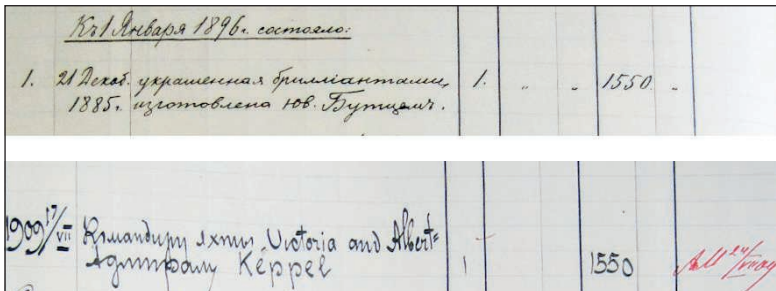 Къ 1 Января 1896 г. состояло:
1. 21 Декаб. украшенная брилліантами, 1. " " 1550 "
1885 г. изготовлена юв. Бутцемъ.
1909 17/VII Командиру яхты Victoria and Albert=
Адмиралу Keppel 1 - 1550 24/VII 09